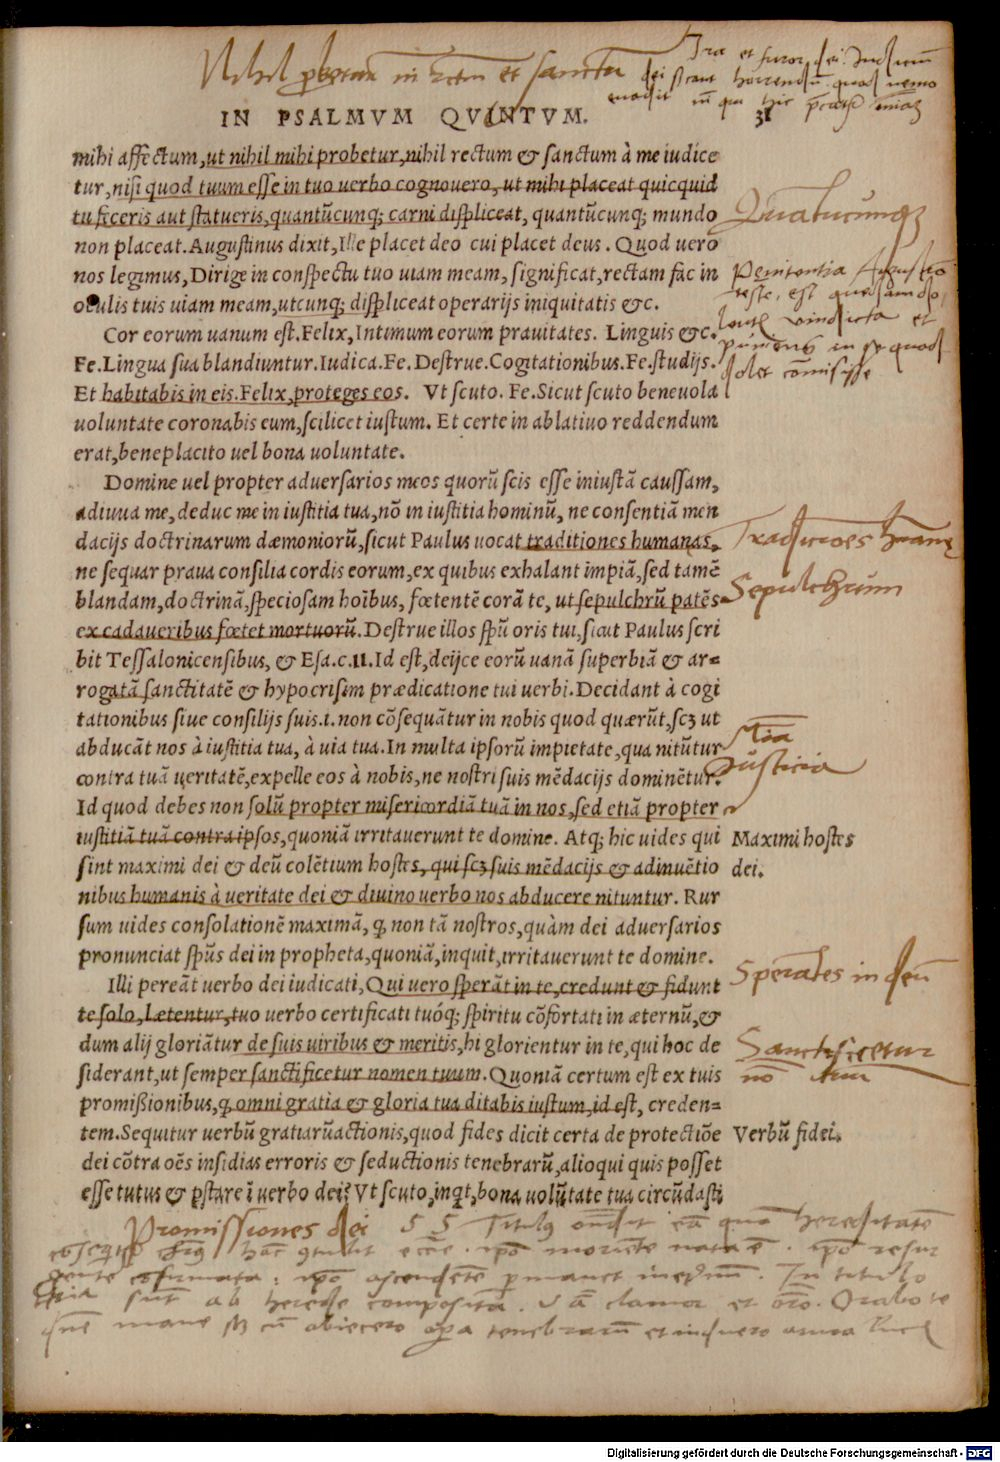 Nihil in et sanctum
Ira et furor dei Iudicium
IN PSALMVM QVINTVM. 31
mihi affectum, ut nihil mihi probetur, nihil rectum & sanctum à me iudice
tur, nisi quod tuum esse in tuo uerbo cognouero, ut mihi placeat quicquid
tu feceris aut statueris, quantũcunq; carni displiceat, quantũcunq; mundo
Quãtucunq;
non placeat. Augustinus dixit, Ille placet deo cui placet deus. Quod uero
nos legimus, Dirige in conspectu tuo uiam meam, significat, rectam fac in
Penitentia Augustino
oculis tuis uiam meam, utcunq; displiceat operarijs iniquitatis &c.
teste, est quedam do,
lentis vindicta et
Cor eorum uanum est. Felix, Intimum eorum prauitates. Linguis &c.
puniens in se quod
Fe. Lingua sua blandiuntur. Iudica. Fe. Destrue. Cogitationibus. Fe. studijs.
dolet cõmisisse
Et habitabis in eis. Felix, proteges eos. Vt scuto. Fe. Sicut scuto beneuola
uoluntate coronabis eum, scilicet iustum. Et certe in ablatiuo reddendum
erat, beneplacito uel bona uoluntate.
Domine uel propter aduersarios meos quorũ scis esse iniustã caussam,
adiuua me, deduc me in iustitia tua, nõ in iustitia hominũ, ne consentiã men
dacijs doctrinarum dæmoniorũ, sicut Paulus uocat traditiones humanas,
Traditioes humane
ne sequar praua consilia cordis eorum, ex quibus exhalant impiã, sed tamẽ
blandam, doctrinã, speciosam hoĩbus, fœtentẽ corã te, ut sepulchrũ patẽs
Sepulchrum
ex cadaueribus fœtet mortuorũ. Destrue illos spũ oris tui, sicut Paulus scri
bit Tessalonicensibus, & Esa. c. 11. Id est, deijce eorũ uanã superbiã & ar=
rogatã sanctitatẽ & hypocrisim prædicatione tui uerbi. Decidant à cogi
tationibus siue consilijs suis .i. non cõsequãtur in nobis quod quærũt, scꝫ ut
abducãt nos à iustitia tua, à uia tua. In multa ipsorũ impietate, qua nitũtur
Mia
contra tuã ueritatẽ, expelle eos à nobis, ne nostri suis mẽdacijs dominẽtur.
Iusticia
Id quod debes non solũ propter misericordiã tuã in nos, sed etiã propter
iustitiã tuã contra ipsos, quoniã irritauerunt te domine. Atq; hic uides qui
Maximi hostes
sint maximi dei & deũ colẽtium hostes, qui scꝫ suis mẽdacijs & adinuẽtio
dei.
nibus humanis à ueritate dei & diuino uerbo nos abducere nituntur. Rur
sum uides consolationẽ maximã, ꝗ non tã nostros, quàm dei aduersarios
pronunciat spũs dei in propheta, quoniã, inquit, irritauerunt te domine.
Illi pereãt uerbo dei iudicati, Qui uero sperãt in te, credunt & fidunt
Sperãtes in deũ
te solo, Lætentur, tuo uerbo certificati tuóq; spiritu cõfortati in æternũ, &
dum alij gloriãtur de suis uiribus & meritis, hi glorientur in te, qui hoc de
Sanctificetur
siderant, ut semper sanctificetur nomen tuum. Quoniã certum est ex tuis
nõ tuu
promißionibus, ꝗ omni gratia & gloria tua ditabis iustum, id est, creden=
tem. Sequitur uerbũ gratiarũactionis, quod fides dicit certa de protectiõe
Verbũ fidei.
dei cõtra oẽs insidias erroris & seductionis tenebrarũ, alioqui quis posset
esse tutus & ꝑstare ĩ uerbo dei? Vt scuto, inqt, bona uolũtate tua circũdasti
Promissiones dei 55 Titulꝰ eã qua hereditatẽ
mane cũ abiecero opa tenebrarũ et induero arma lucis
Digitalisierung gefördert durch die Deutsche Forschungsgemeinschaft - DFG